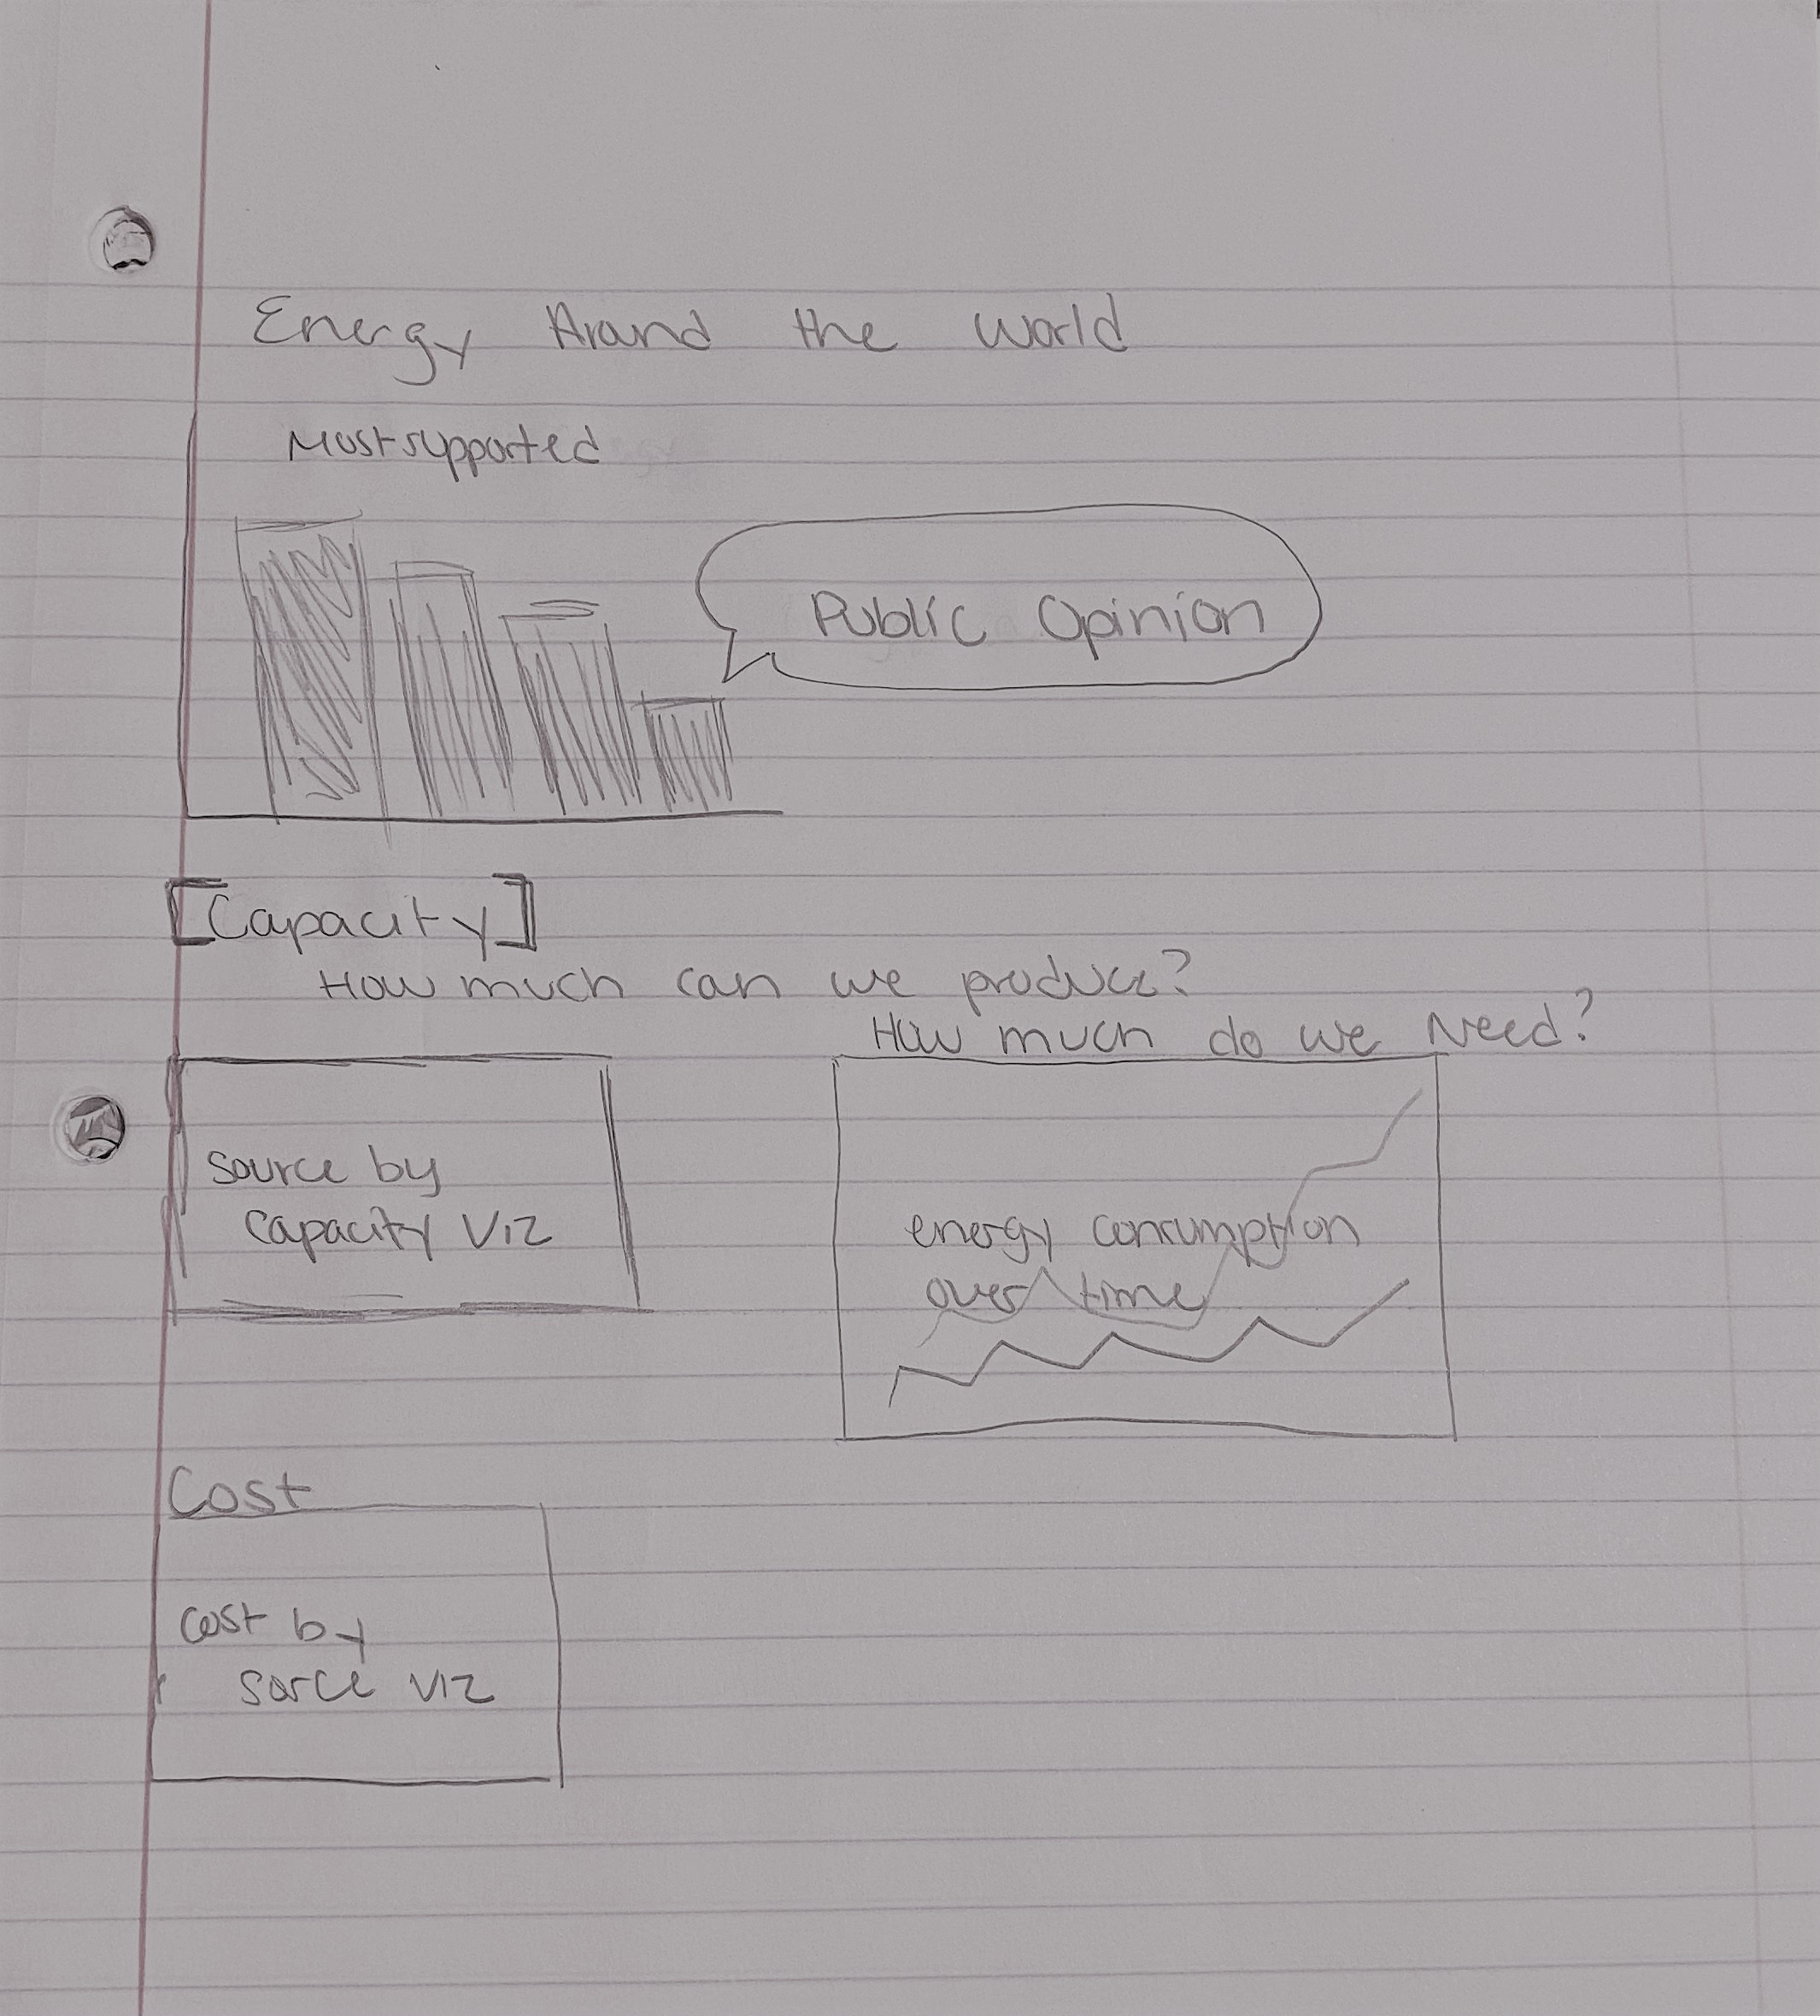 Energy Around the World
Most supported
Public Opinion
[Capacity]
How much can we produce?
How much do we Need?
source by
capacity viz
energy consumption
over time
Cost
cost by
sorce viz